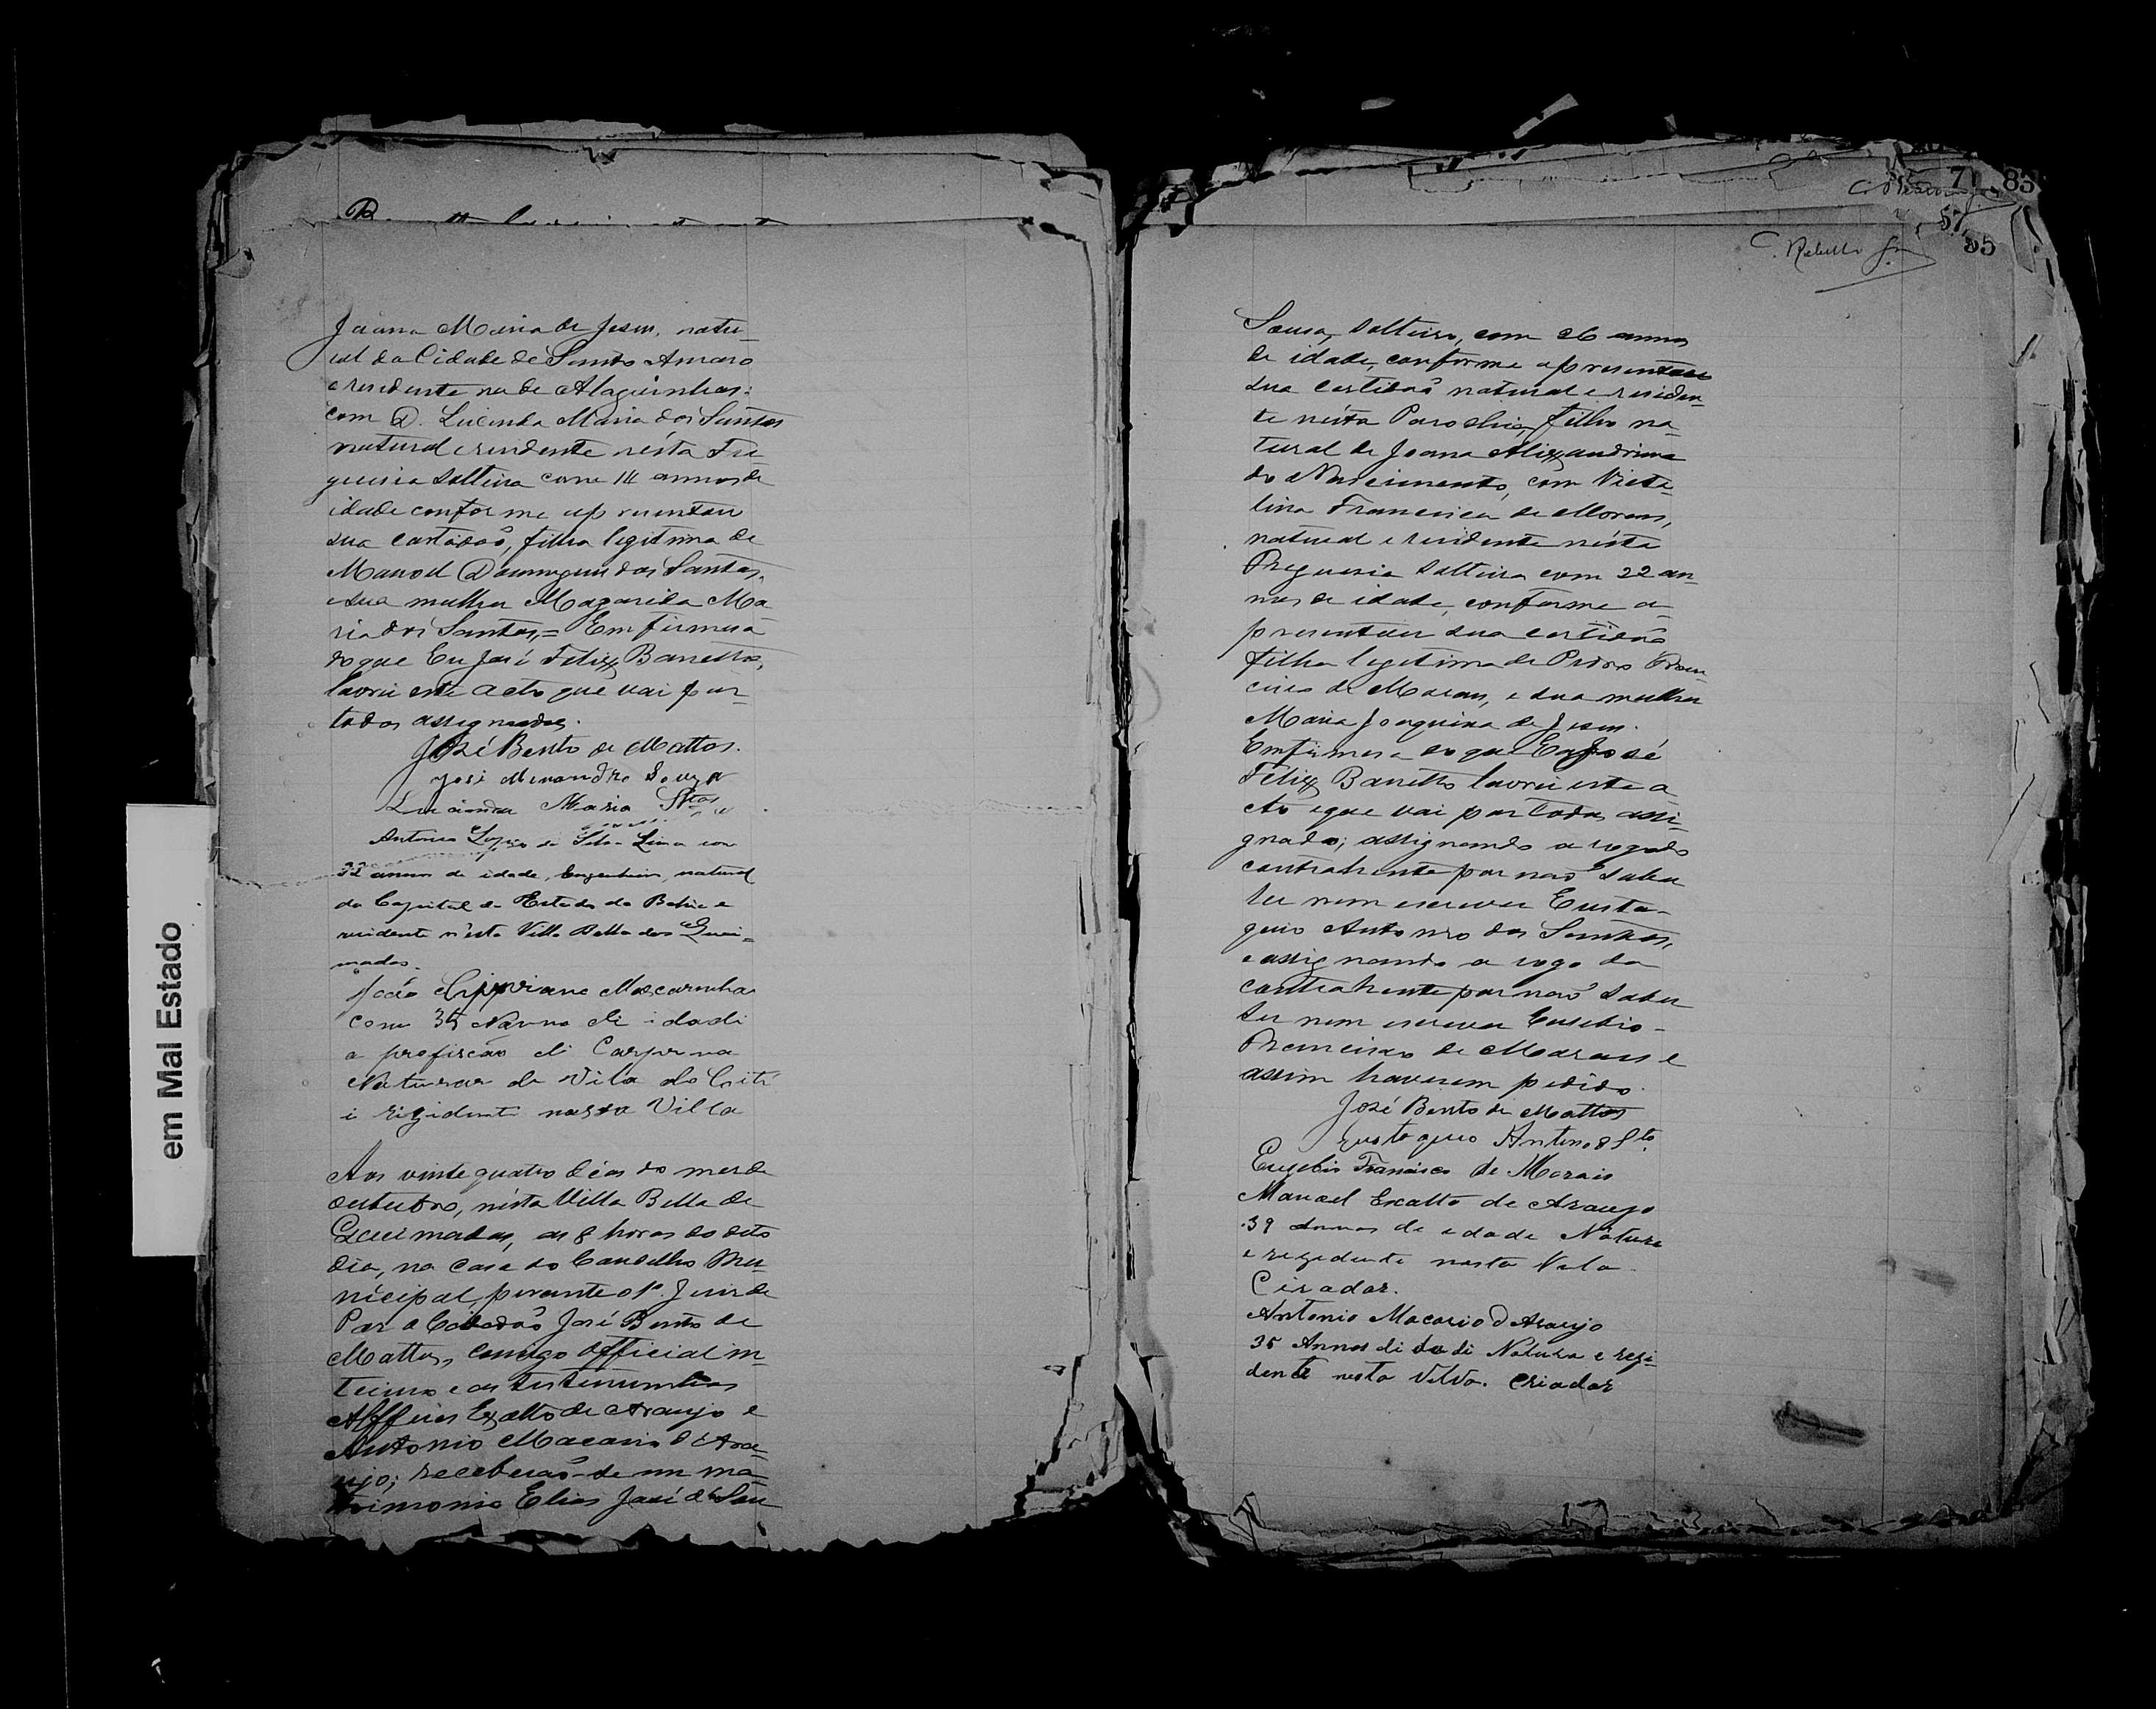 em Mal Estado
Joana Maria de Jesus, natu-
ral da Cidade de Santo Amaro
e residente na de Alagoinhas:
com D. Lucinda Maria dos Santos
natural e residente nésta Fre-
guesia solteira com annos de
idade conforme apresentou
sua certidão, filha legitima de
Manoel Domingues dos Santos,
e sua mulher Magarida Ma-
ria dos Santos,= Em firmesa
do que Eu José Felix Barretto,
lavrei este acto que vai por
todos assignados.
José Bento de Mattos.
José Menandro Souza
Lucinda Maria Stos
Antonio Lopes da Silva Lima com
32 annos de idade, Engenheiro, natural
da Capital do Estado da Bahia e
residente n'esta Villa Bella das Quei-
madas.
João Cipriano Mascarenha
com 35 Nannos di idadi
a profição di Carpina
Naturar da Vila do
i rizidenti nassta Villa
Aos vinte quatro dias do mes de
outubro, nésta Villa Bella de
Queimadas, as 8 horas do dito
dia, na casa do Conselho Mu-
nicipal, perante o 1º Juis de
Pas o Cidadão José Bento de
Mattos, comigo Official in-
terino e as testemunhas
Alfferes Exalto de Araujo e
Antonio Macario d'Ara-
ujo; receberão-se em ma-
trimonio Elias José de Sou
C. Rebello Jr
71 83
57
85
Sousa, solteiro, com 26 annos
de idade, conforme apresentou
sua certidão natural e residen-
te nésta Parochia, filho na-
tural de Joana Alixandrina
do Nascimento, com Victa-
lina Francisca de Moraes,
natural e residente nésta
Freguesia solteira com 22 an-
nos de idade, conforme a-
presentou sua certidão
filha legitima de Pedro Fran-
cisco de Moraes, e sua mulher
Maria Joaquina de Jesus.
Em firmesa do que Eu José
Felix Barretto lavrei este a-
cto e que vai por todos assi-
gnado; assignando a rogo do
contrahente por não saber
ler nem escrever Eusta-
quio Antonio dos Santos,
e assignando a rogo da
contrahente por não saber
ler nem escrever Eusebio
Francisco de Moraes e
assim haverem pedido.
José Bento de Mattos
Eustaquio Antonio dos Stos.
Euzebio Francisco de Morais
Manoel Exalto de Araujo
39 annos de edade Nature
e rezedente nesta Vila
Ciradar.
Antonio Macario D Araujo
35 Annos di dadi Natura e rezi-
dente nesta Villa. Criador